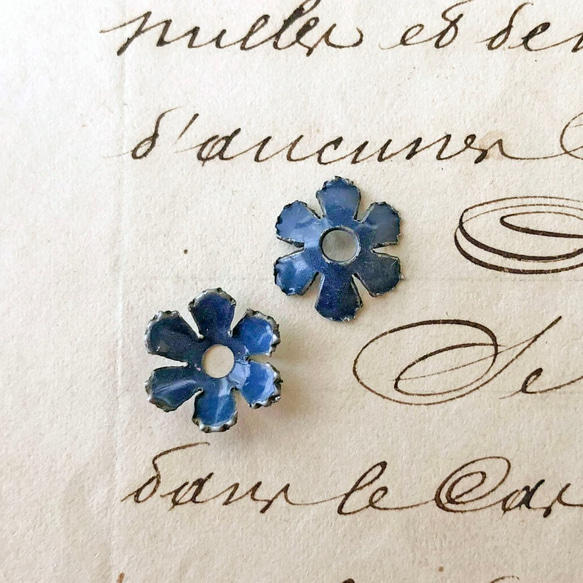 nulles et de
d'aucuns
Se
dans le Cas